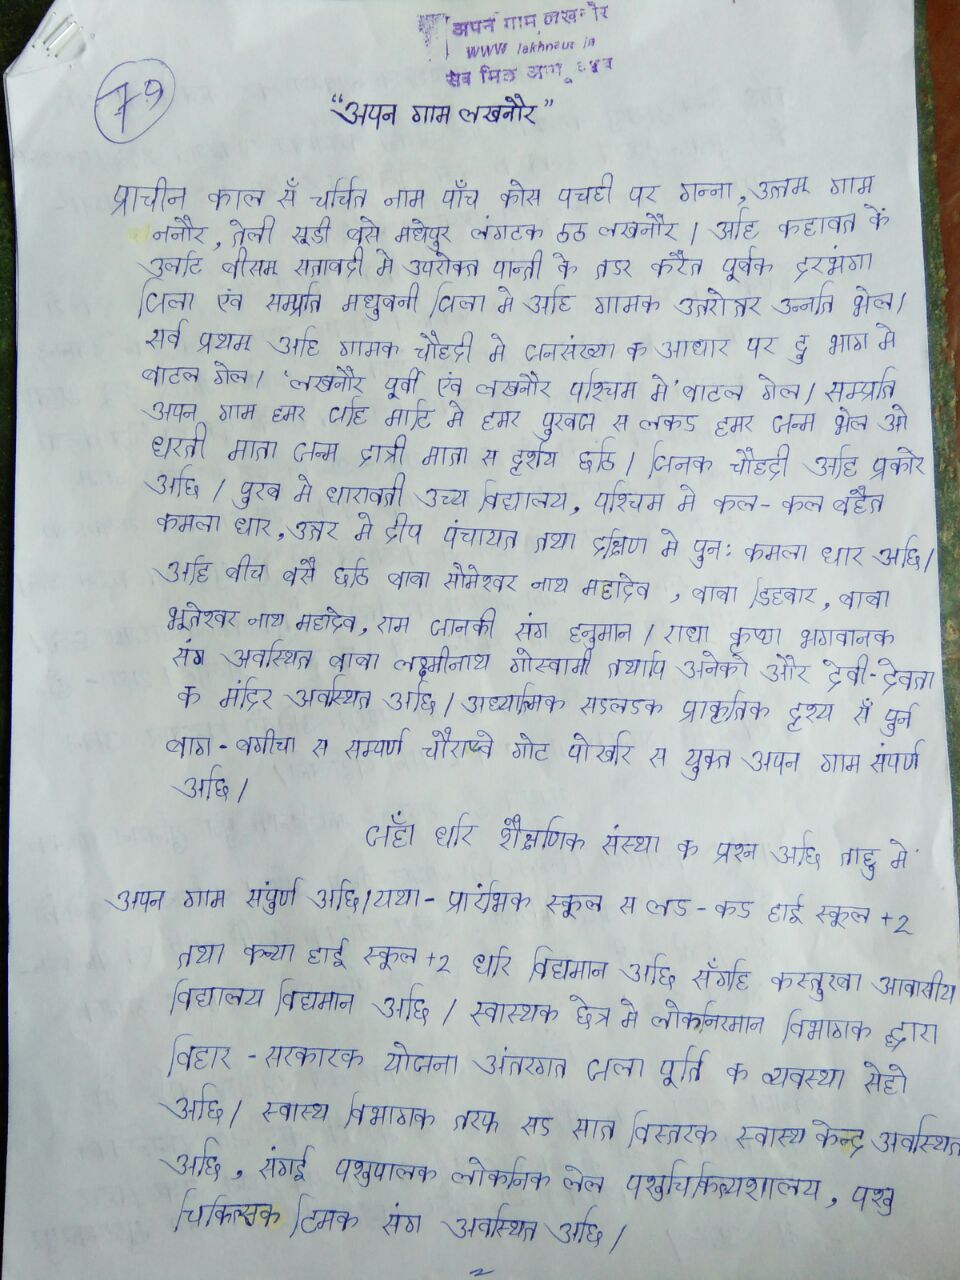 अपन गाम लखनौर
www lakhnaur in
सब मिल
79
“अपन गाम लखनौर”
प्राचीन काल सँ चर्चित नाम पाँच कोस पचही पर गन्ना, उत्तम गाम
ननौर, तेली सूडी बसे मधेपुर लंगटक ठठ लखनौर। अहि कहावत कें
उलटि बीसम सताबदी मे उपरोक्त पान्ती के तडर करैत पूर्वक दरभंगा
जिला एंव सम्प्रति मधुवनी जिला मे अहि गामक उतरोतर उन्नति भेल।
सर्व प्रथम अहि गामक चौहदी मे जनसंख्या क आधार पर दु भाग मे
बाटल गेल। 'लखनौर पूर्वी एंव लखनौर पश्चिम मे' बाटल गेल। सम्प्रति
अपन गाम हमर जहि माटि मे हमर पुरवज स लकड हमर जन्म भेल ओ
धरती माता जन्म दात्री माता स दृर्शय छथि। जिनक चौहद्री अहि प्रकोर
अछि। पुरब मे धारावती उच्य विद्यालय, पश्चिम मे कल-कल बहैत
कमला धार, उत्तर मे दीप पंचायत तथा दक्षिण मे पुनः कमला धार अछि।
अहि बीच बसै छथि बाबा सोमेश्वर नाथ महादेव, बाबा डिहवार, बाबा
भूतेश्वर नाथ महादेव, राम जानकी संग हनुमान। राधा कृष्ण भगवानक
संग अवस्थित बाबा लक्ष्मीनाथ गोस्वामी तथापि अनेको और देवी-देवता
क मंदिर अवस्थित अछि। अध्यात्मिक सडलडक प्राकृतिक दृश्य सँ पुर्न
बाग-बगीचा स सम्पर्ण चौराप्वे गोट पोखरि स युक्त अपन गाम संपर्ण
अछि।
जहाँ धरि शैक्षणिक संस्था क प्रश्न अछि ताहु मे
अपन गाम संपुर्ण अछि। यथा- प्रारंभिक स्कूल स लड-कड हाई स्कूल +2
तथा कन्या हाई स्कूल +2 धरि विद्यमान अछि सँगहि कस्तुरबा आवासीय
विद्यालय विद्यमान अछि। स्वास्थक छेत्र मे लोकनिरमान विभागक द्वारा
विहार-सरकारक योजना अंतरगत जला पूर्ति क व्यवस्था सेहो
अछि। स्वास्थ विभागक तरफ सड सात विस्तरक स्वास्थ केन्द्र अवस्थित
अछि, संगई पशुपालक लोकनिक लेल पशुचिकित्यशालय, पशु
चिकित्सक टिमक संग अवस्थित अछि।
2